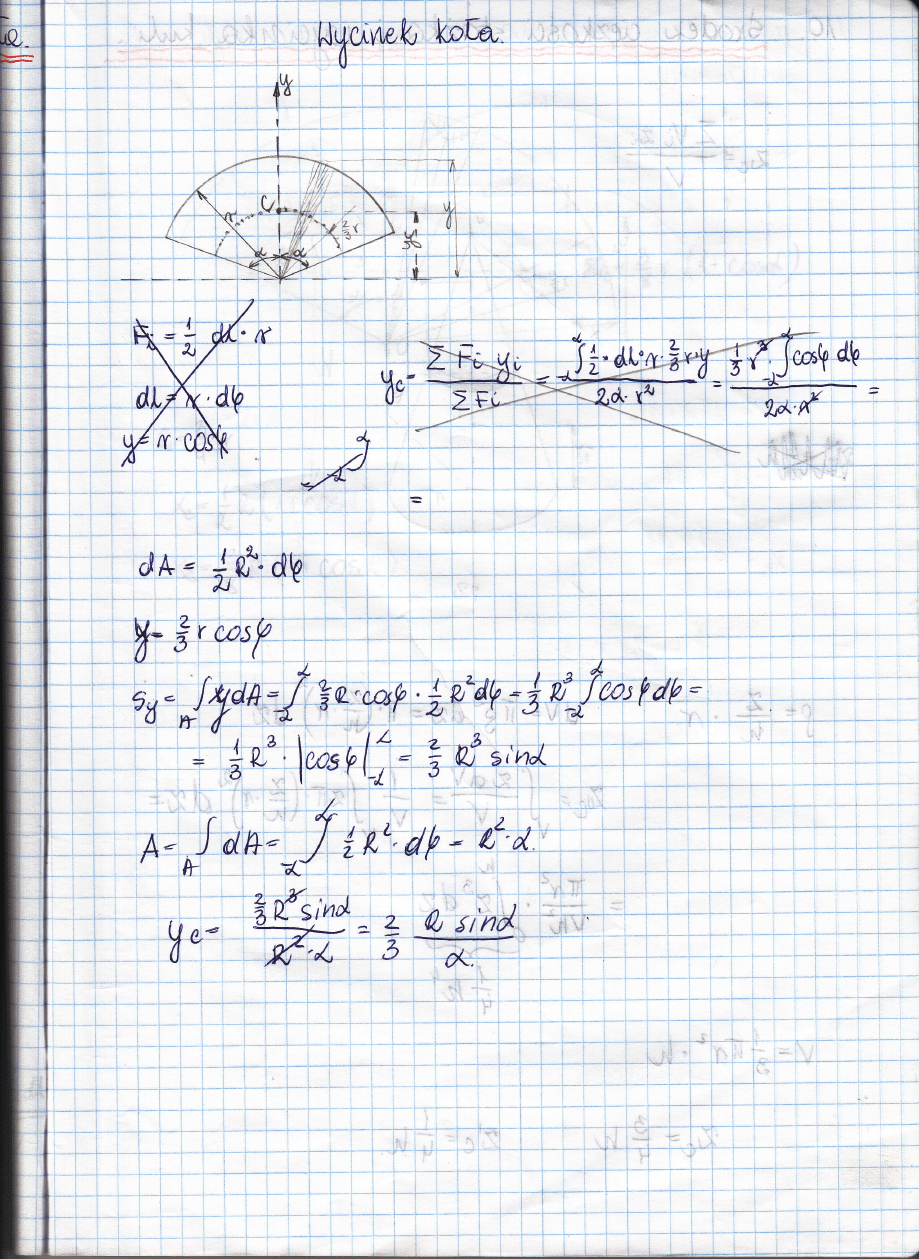 Wycinek koła.
y
r C 2/3 r y
α α yc
Fi = 1/2 dl · r
dl = r · dφ
y = r · cosφ
yc = Σ Fi yi / Σ Fi = ∫_{-α}^{α} 1/2 · dl · r · 2/3 r · y / 2α · r² = 1/3 r³ · ∫_{-α}^{α} cosφ dφ / 2α · r² =
=
dA = 1/2 R² · dφ
y = 2/3 r cosφ
Sy = ∫_A y dA = ∫_{-α}^{α} 2/3 R · cosφ · 1/2 R² dφ = 1/3 R³ ∫_{-α}^{α} cosφ dφ =
= 1/3 R³ · |cosφ|_{-α}^{α} = 2/3 R³ sinα
A = ∫_A dA = ∫_{-α}^{α} 1/2 R² · dφ = R² · α.
yc = 2/3 R³ sinα / R² · α = 2/3 R sinα / α.